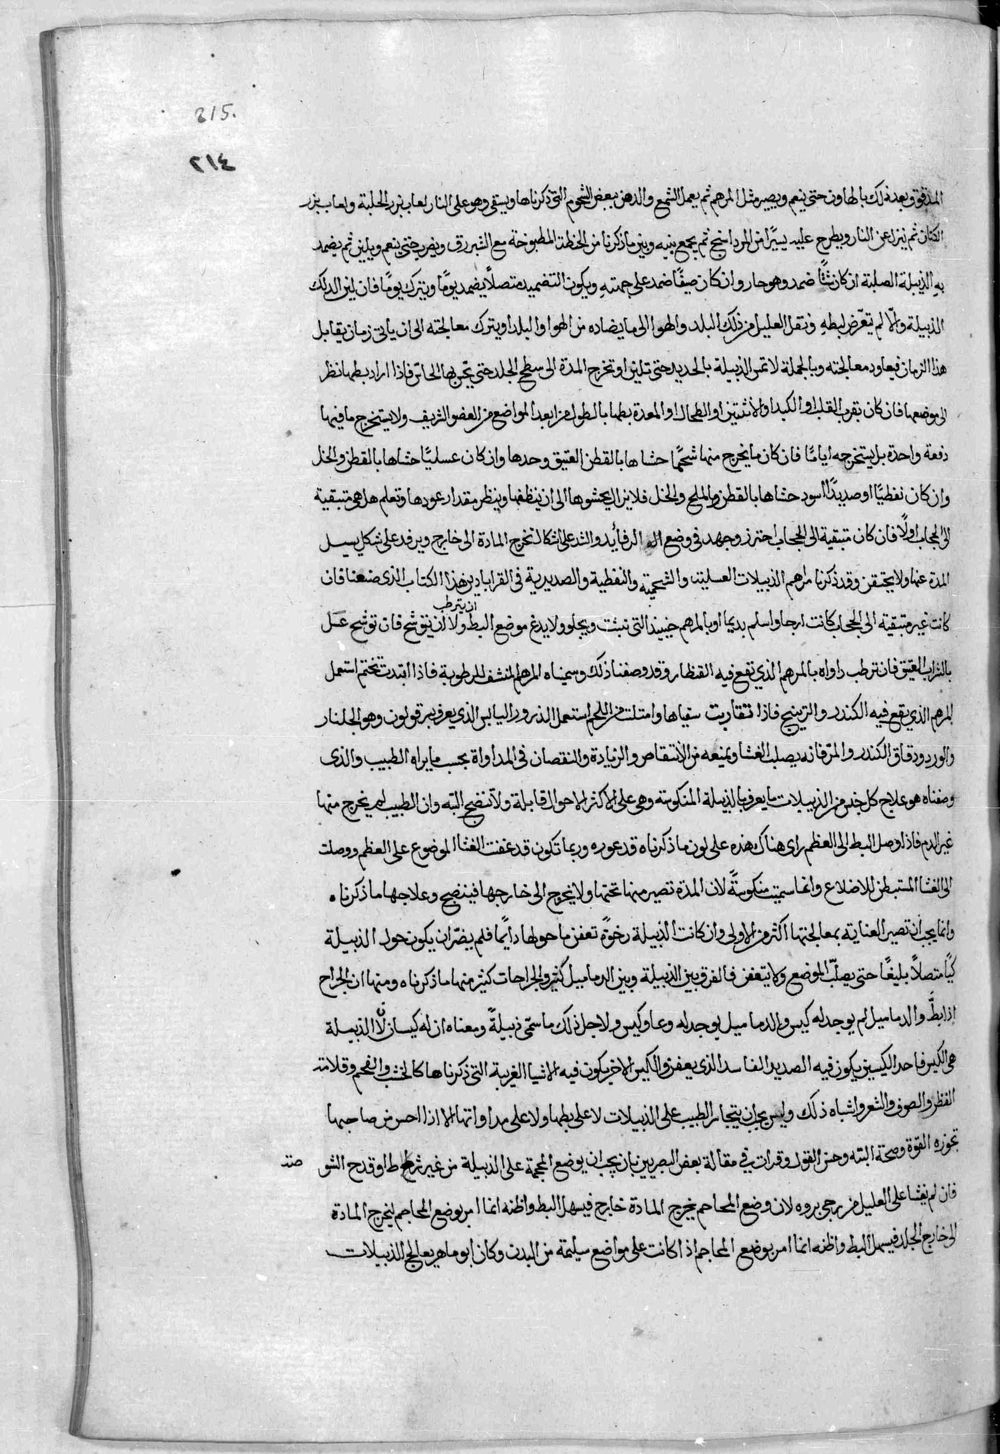 215.
٢١٤
المدقوق وبعد ذلك بالهاون حتى ينعم ويصير مثل المرهم ثم يعمل الشمع والدهن ببعض الشحوم التي ذكرناها ويسقى وهو على النار لعاب بزر الحلبة ولعاب بزر
الكتان ثم ينزل عن النار ويطرح عليه يسيرًا من المرداسنج ثم يجمع بينه وبين ما ذكرنا من الحنطة المطبوخة مع الشيرق ويضرب حتى ينعم ويلين ثم يضمد
به الذبيلة الصلبة ان كان شتاً ضمد وهو حار وان كان صيفًا ضمد على جمته ويكون التضميد متصلاً يضمد يومًا ويترك يومًا فان لين الدلك
الذبيلة والا لم يتعرض لبطه وننقل العليل من ذلك البلد والهوا الى ما يضاده من الهوا والبلد او يترك معالجته الى ان ياتى زمان يقابل
هذا الزمان فيعاود معالجته وبالجملة لا تمس الذبيلة بالحديد حتى تلين او تخرج المدة الى سطح الجلد حتى يحس بها الحاس فاذا اراد بطها نظر
الى موضعها فان كان بقرب القلب او الكبد او الانثيين او الطحال او المعدة بطها بالطول من ابعد المواضع من العضو الشريف ولا يستخرج ما فيها
دفعة واحدة بل يستخرجه اياماً فان كان ما يخرج منها شحمًا حشاها بالقطن العتيق وحدها وان كان عسليًا حشاها بالقطن والخل
وان كان نفطيًا او صديدًا اسود حشاها بالقطن والملح والخل فلا يزال يحشوها الى ان ينظفها وينظر مقدار عورها وتعلم هل هى متبقية
الى الحجاب اولاً فان كان متبقية الى الحجاب احترز وجهد فى وضع الرفأيد والشد على اشكال تخرج المادة الى خارج ويرفد على شكل يسيل
المدة عنها ولا يحتقن وقد ذكرنا مراهم الذبيلات العسلية والشحمية والنفطية والصديدية فى القراباذين هذا الكتاب الذى ضعناه فان
كانت غير متبقية الى الحجاب كانت ارجا واسلم يديما اوبا المرهم حينيذ التى تنبت ويحلو ولا يدغ موضع البط ولا ان يترطب ان يتوشح فان توشح غسل
بالشراب العتيق فان ترطب داواه بالمرهم الذي تقع فيه القظار وقد وصفنا ذلك وسميناه المرهم المنشف للرطوبة فاذا ابتدت تختم استعمل
المرهم الذي يقع فيه الكندر والزرنيج فاذا تقاربت سفياها وامتلت من اللحم استعمل الذرور اليابس الذي يعرف بمرقولون وهو الجلنار
والورد ودقاق الكندر والمرّ فانه يصلب الغشا ويمنعه من الانتقاص والزيادة والنقصان فى المداواة بحسب ما يراه الطبيب والذى
وصفناه هو علاج كل جنس من الذبيلات ما يعرف بالذبيلة المنكوسة وهى على الاكثر الاحوال قابلة ولا تنضج البته وان الطبيب لم يخرج منها
غير الدم فاذا وصل البط الى العظم راى هناك هذه على لون ما ذكرناه قد عوره وربما تكون قد عفنت الغشا الموضوع على العظم ووصلت
الى الغشا المستبطن للاضلاع وانما سميت منكوسةً لان المدة تصير منها تحتها ولا يخرج الى خارجها فينضج وعلاجها ما ذكرناه
وانما يجب ان تصير العناية بمعالجتها اكثر من الاولى وان كانت الذبيلة رخوة تعفن ما حولها دايمًا فلم يضرّ ان يكون حول الذبيلة
كيًّا متصلاً بليغًا حتى يصلّب الموضع ولا يتعفن فالفرق بين الذبيلة وبين الدماميل كثير والجراحات كثير منها ما ذكرناه ومنها ان الجراح
اذا بطّ والدماميل لم يوجد له كيس والدماميل يوجد له وعا وكيس ولاجل ذلك ما سمّى ذبيلةً ومعناه ان له كيسان لان الذبيلة
هى الكيس فاحد الكيسين يكون فيه الصديد الفاسد الذى يعفن والكيس الاخر يكون فيه الاشيا الغريبة التى ذكرناها كالخشب والفحم وقلامة
الظفر والصوف والشعر واشباه ذلك وليس يجب ان يتجاسر الطبيب على الذبيلات لا على بطها ولا على مداواتها الا اذا احس من صاحبها
بجوزه القوة وصحة البنة وحسن القول وقرات فى مقالة بعض البصريين بان يجب ان يوضع المحجمة على الذبيلة من غير شرط او قدح الشو صد
فان لم يغشا على العليل فرجى بروه لان وضع المحاجم يخرج المادة خارج فيسهل البط واظنه انما امر بوضع المحاجم ليخرج المادة
الى خارج الجلد فيسهل البط واظنه انما امر بوضع المحاجم اذا كانت على مواضع سليمة من البدن وكان ابو ماهر يعالج الذبيلات